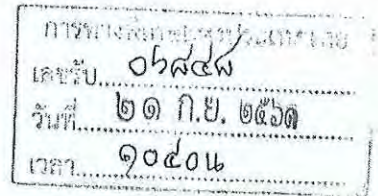 การทางพิเศษแห่งประเทศไทย
เลขรับ ๐๖๘๔๘
วันที่ ๒๑ ก.ย. ๒๕๖๑
เวลา ๑๐๔๐น